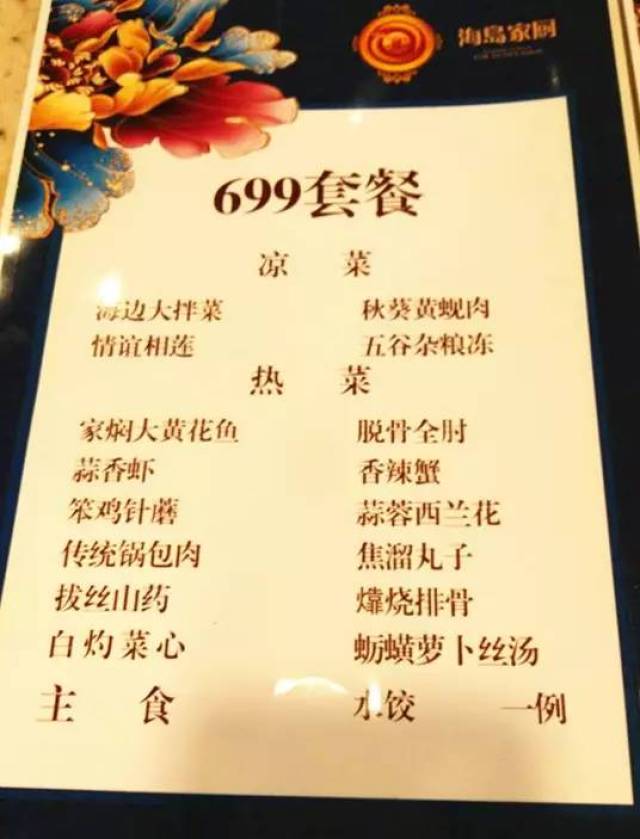 海岛家厨
699套餐
凉 菜
海边大拌菜 秋葵黄蚬肉
情谊相莲 五谷杂粮冻
热 菜
家焖大黄花鱼 脱骨全肘
蒜香虾 香辣蟹
笨鸡针蘑 蒜蓉西兰花
传统锅包肉 焦溜丸子
拔丝山药 㸆烧排骨
白灼菜心 蛎蟥萝卜丝汤
主 食 水饺 一例